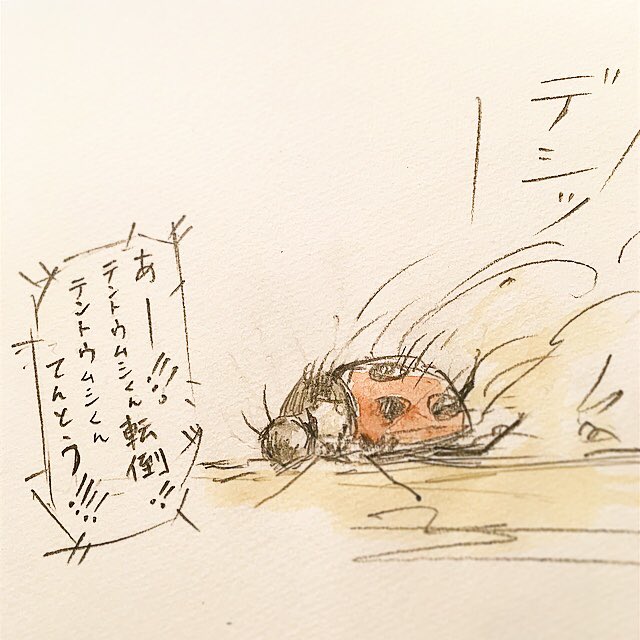 デシッ
あー!!!
テントウムシくん転倒!!
テントウムシくん
てんとう!!!!